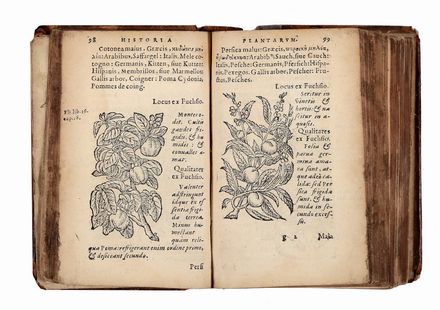 98 HISTORIA
Cotonea malus: Græcis, κυδώνια μη-
λία: Arabibus, Saffargel: Italis, Mele co-
togno: Germanis, Kitten, siue Kutten:
Hispanis, Membrillos, siue Marmellos
Gallis arbor, Coigner: Poma Cydonia,
Pommes de coing.
Locus ex Fuchsio.
Montes o-
dit. Cultu
gaudet fri
gidis, & hu
midis: &
conualles a-
mat.
Qualitates
ex Fuchsio.
Valenter
adstringunt
idque ex ef
sentia frigi-
da terrea.
Maxime hu-
mectant
quàm reli-
qua Poma: refrigerant enim ordine primo,
& desiccant secundo.
Persi
PLANTARVM. 99
Persica malus: Græcis,
Arabib° Sauch, siue Gauch:
Italis, Pesche: Germanis, Pfersich: Hispa-
nis, Pexegos. Gallis arbor, Pescher: Fru-
ctus, Pesches.
Locus ex Fuchsio.
Seritur in
vinetis &
hortis: & na
scitur in a-
quosis.
Qualitates
ex Fuchsio.
Folia &
parua ger
mina ama-
ra sunt, at-
que adeò ca-
lida: sed Per
sica frigida
sunt, & hu
mida in se-
cundo exces-
su.
g 2 Mala